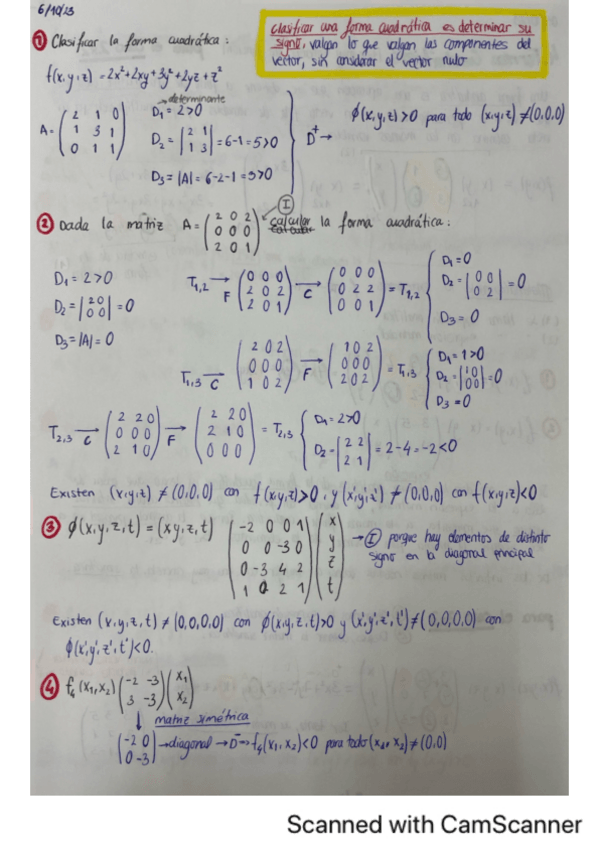 6/10/23
clasificar una forma cuadrática es determinar su
signo, valgan lo que valgan las componentes del
vector, sin considerar el vector nulo
1 Clasificar la forma cuadrática:
f(x,y,z) = 2x²+2xy+3y²+2yz+z²
→determinante
A = ( 2 1 0
1 3 1
0 1 1 )
D₁ = 2>0
D₂ = |2 1
1 3| = 6-1 = 5>0
D₃ = |A| = 6-2-1 = 3>0
D⁺ → ϕ(x,y,z)>0 para todo (x,y,z) ≠(0,0,0)
2 Dada la matriz A = ( 2 0 2
0 0 0
2 0 1 ) I calcular la forma cuadrática:
D₁ = 2>0
D₂ = |2 0
0 0| = 0
D₃ = |A| = 0
T₁,₂ →F (0 0 0
2 0 2
2 0 1) →C (0 0 0
0 2 2
0 0 1) = T₁,₂
D₁ = 0
D₂ = |0 0
0 2| = 0
D₃ = 0
T₁,₃ →C (2 0 2
0 0 0
1 0 2) →F (1 0 2
0 0 0
2 0 2) = T₁,₃
D₁ = 1>0
D₂ = |1 0
0 0| = 0
D₃ = 0
T₂,₃ →C (2 2 0
0 0 0
2 1 0) →F (2 2 0
2 1 0
0 0 0) = T₂,₃
D₁ = 2>0
D₂ = |2 2
2 1| = 2-4 = -2<0
Existen (x,y,z) ≠ (0,0,0) con f(x,y,z)>0, y (x',y',z') ≠ (0,0,0) con f(x,y,z)<0
3 ϕ(x,y,z,t) = (x,y,z,t) (-2 0 0 1
0 0 -3 0
0 -3 4 2
1 0 2 1) (x
y
z
t)
→ I porque hay elementos de distinto
signo en la diagonal principal
Existen (x,y,z,t) ≠ (0,0,0,0) con ϕ(x,y,z,t)>0 y (x',y',z',t')≠(0,0,0,0) con
ϕ(x',y',z',t')<0.
4 f₄(x₁,x₂) (-2 -3
3 -3) (x₁
x₂)
↓ matriz simétrica
(-2 0
0 -3) →diagonal →D⁻→ f₄(x₁,x₂)<0 para todo (x₁,x₂) ≠(0,0)
Scanned with CamScanner